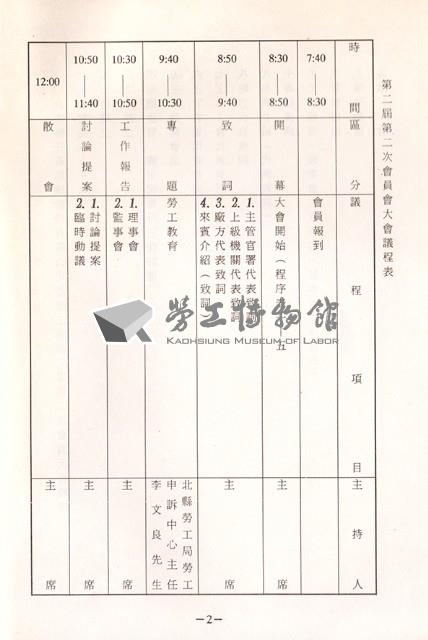 第二屆第二次會員會大會議程表
時間 區分 議程項目 主持人
7:40｜8:30 會員報到
8:30｜8:50 開幕 大會開始（程序表 五 主席
8:50｜9:40 致詞
1.主管官署代表致詞
2.上級機關代表致詞
3.廠方代表致詞
4.來賓介紹（致詞
主席
9:40｜10:30 專題 勞工教育
北縣勞工局勞工
申訴中心主任
李文良先生
10:30｜10:50 工作報告
1.理事會
2.監事會
主席
10:50｜11:40 討論提案
1.討論提案
2.臨時動議
主席
12:00 散會 主席
勞工博物館
KAOHSIUNG MUSEUM OF LABOR
—2—